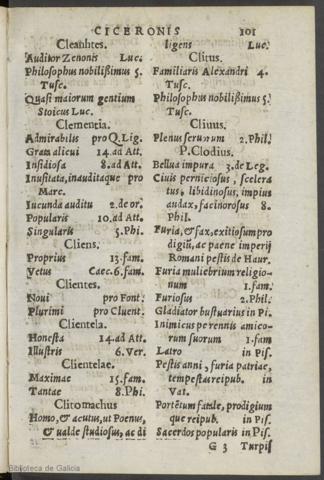 CICERONIS 101
Cleanhtes.
Auditor Zenonis Luc.
Philosophus nobilißimus 5.
Tusc.
Quasi maiorum gentium
Stoicus Luc.
Clementia.
Admirabilis pro Q. Lig.
Grata alicui 14. ad Att.
Insidiosa 8. ad Att.
Inusitata, inauditaque pro
Marc.
Iucunda auditu 2. de or.
Popularis 10. ad Att.
Singularis 5. Phi.
Cliens.
Proprius 13. fam.
Vetus Caec. 6. fam.
Clientes.
Noui pro Font.
Plurimi pro Cluent.
Clientela.
Honesta 14. ad Att.
Illustris 6. Ver.
Clientelae.
Maximae 15. fam.
Tantae 8. Phi.
Clitomachus
Homo, & acutus, ut Poenus,
& ualde studiosus, ac di
ligens Luc.
Clitus.
Familiaris Alexandri 4.
Tusc.
Philosophus nobilißimus 5.
Tusc.
Cliuus.
Plenus seruorum 2. Phil.
P. Clodius.
Bellua impura 3. de Leg.
Ciuis perniciosus, scelera
tus, libidinosus, impius
audax, facinorosus 8.
Phil.
Furia, & fax, exitiosum pro
digiũ, ac paene imperij
Romani pestis de Haur.
Furia muliebrium religio-
num 1. fam.
Furiosus 2. Phil.
Gladiator bustuarius in Pi.
Inimicus perennis amico-
rum suorum 1. fam
Latro in Pis.
Pestis anni, furia patriae,
tempestas reipub. in
Vat.
Portẽtum fatale, prodigium
que reipub. in Pis.
Sacerdos popularis in Pis.
G 3 Turpis
Biblioteca de Galicia